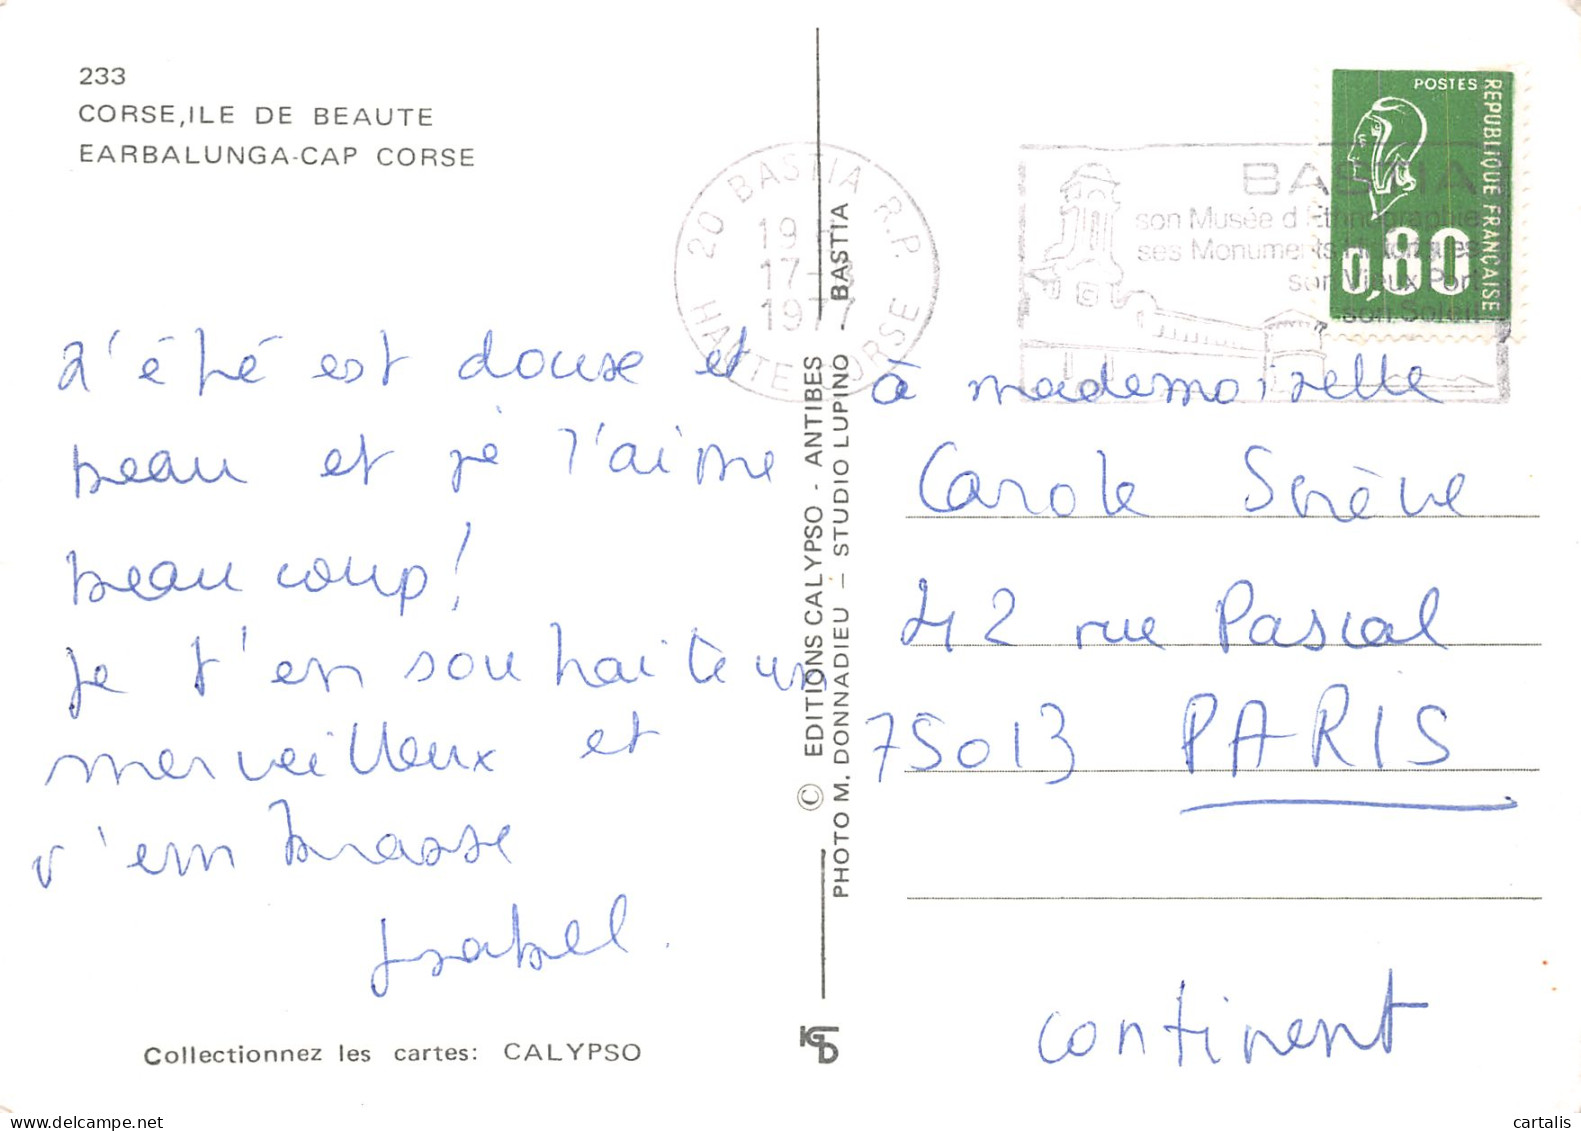 233
CORSE,ILE DE BEAUTE
EARBALUNGA-CAP CORSE
L'été est douse et
beau et je l'aime
beaucoup!
je t'en souhaite un
merveilleux et
t'embrasse
Isabel.
Collectionnez les cartes: CALYPSO
© EDITIONS CALYPSO - ANTIBES - BASTIA
PHOTO M. DONNADIEU – STUDIO LUPINO
20 BASTIA R.P.
19 H
17-
1977
HAUTE CORSE
BASTIA
son Musée d'Ethnographie
ses Monuments Historiques
son Vieux Port
son Soleil
POSTES
REPUBLIQUE FRANCAISE
0,80
à mademoiselle
Carole
42 rue Pascal
75013 PARIS
continent
cartalis